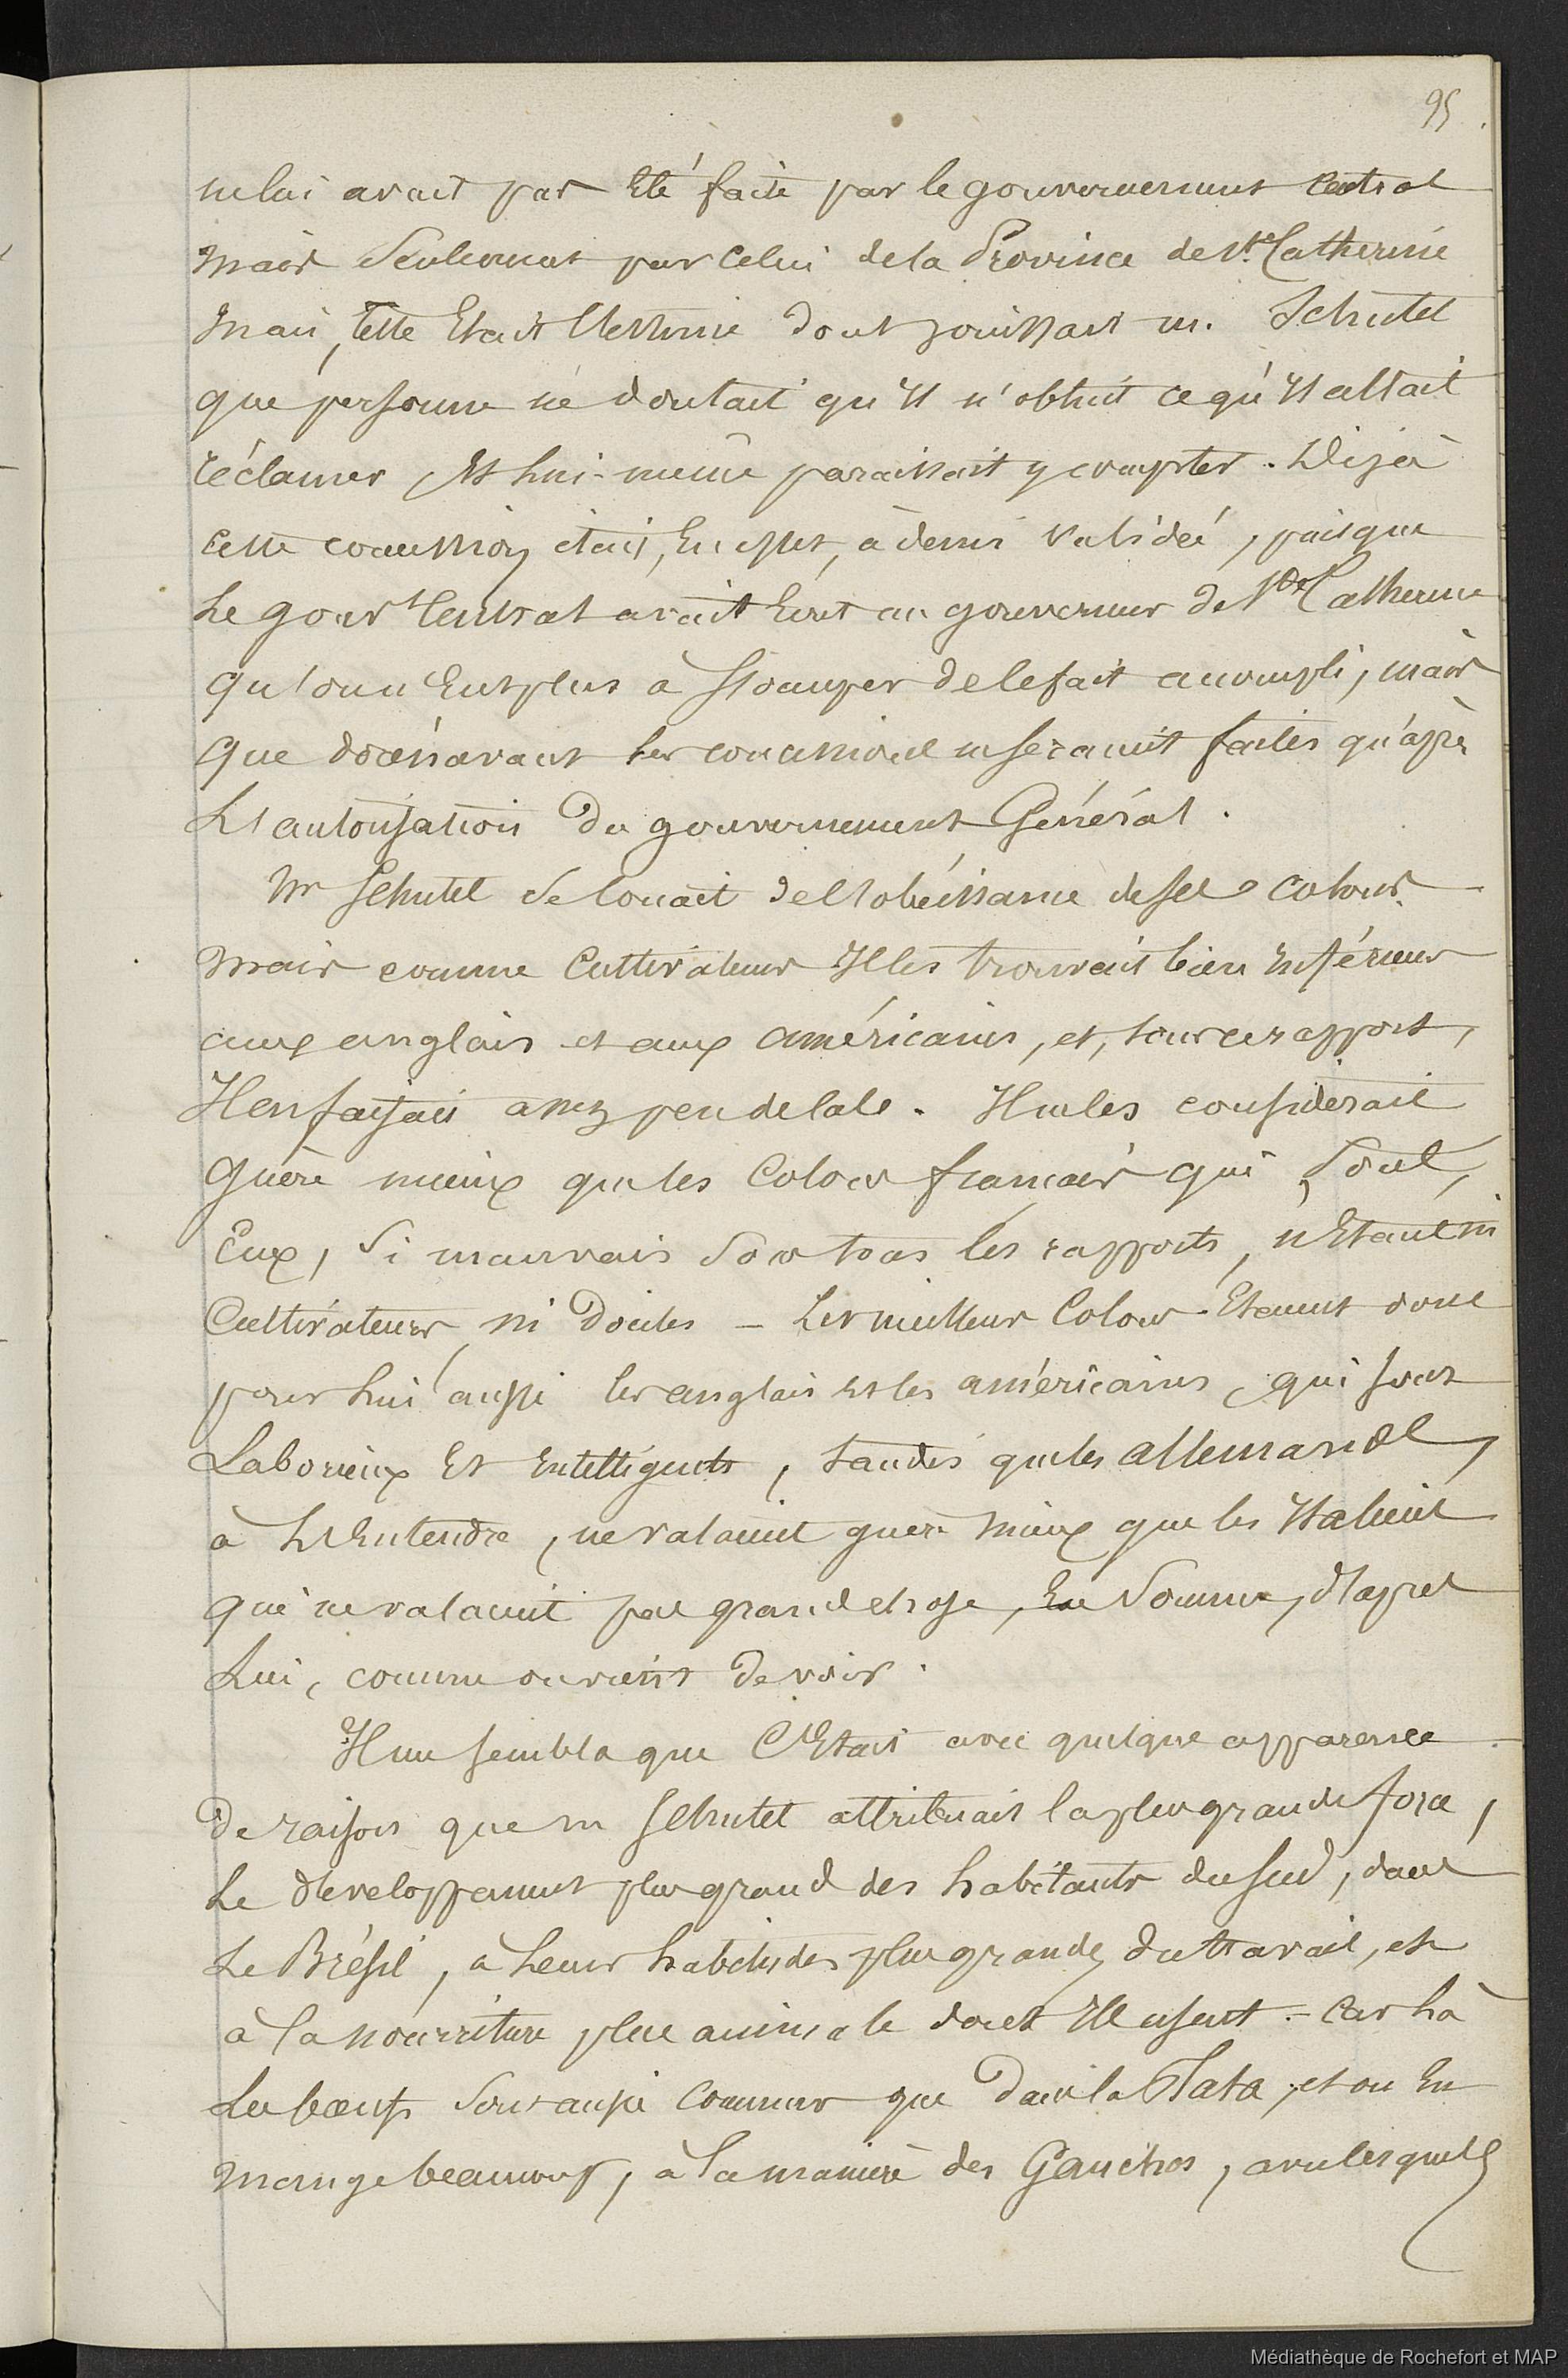 95
ne lui avait pas été faite par le gouvernement central
mais seulement par celui de la Province de Ste Catherine
mais, telle était l'estime dont jouissait m. Schutel
que personne ne doutait qu'il n'obtint ce qu'il allait
réclamer, et lui-même paraissait y compter. Déjà
cette concession était, en effet, à demi validée, puisque
le gouvt central avait écrit au gouverneur de Ste Catherine
qu'on n'eut plus à s'occuper de le fait accompli, mais
que dorénavant les concessions ne seraient faites qu'après
l'autorisation du gouvernement Général.
Mr Schutel se louait de l'obéissance de ses colons
mais comme cultivateurs Il les trouvait bien inférieurs
aux anglais et aux américains, et, sous ce rapport,
Il en faisait assez peu de cas. Il ne les considérait
guère mieux que les colons français qui, sont,
eux, si mauvais sous tous les rapports, n'étant ni
cultivateurs, ni dociles – Les meilleurs colons étaient donc
pour lui aussi les anglais et les américains, qui sont
Laborieux et intelligents, tandis que les allemands,
à l'entendre, ne valaient guère mieux que les Italiens
qui ne valaient pas grand chose, en somme, d'après
Lui, comme on vient de voir.
Il me sembla que c'était avec quelque apparence
de raison que m Schutel attribuait la plus grande force,
le développement plus grand des habitants du sud, dans
le Brésil, à leurs habitudes plus grandes du travail, et
à la nourriture plus animale dont Ils usent. – Car là
les bœufs sont aussi communs que dans la Plata, et on en
mange beaucoup, à la manière des Gauchos, avec lesquels
Médiathèque de Rochefort et MAP